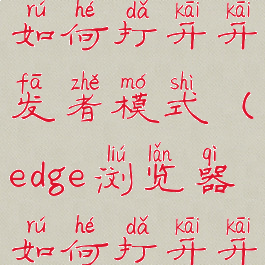 rú hé dǎ kāi kāi
如何打开开
fā zhě mó shì
发者模式（
liú lǎn qì
edge浏览器
rú hé dǎ kāi kāi
如何打开开